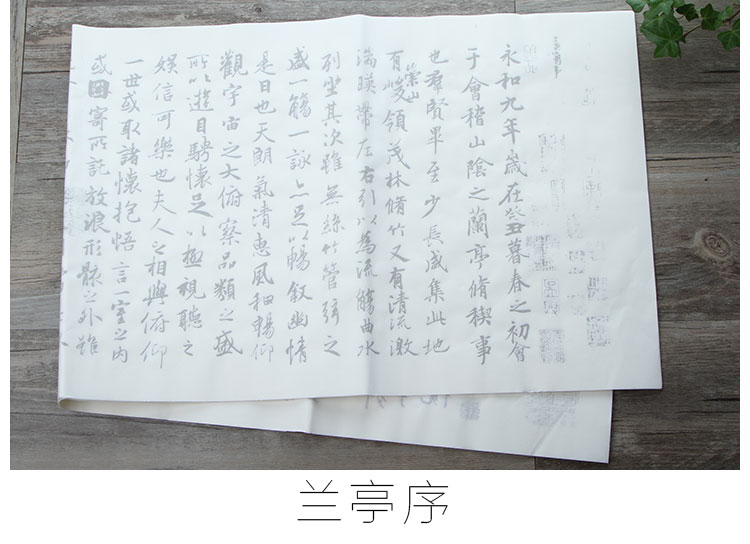 永和九年歲在癸丑暮春之初會
于會稽山陰之蘭亭脩稧事
也羣賢畢至少長咸集此地
有崇山峻領茂林脩竹又有清流激
湍暎帶左右引以為流觴曲水
列坐其次雖無絲竹管弦之
盛一觴一詠亦足以暢敘幽情
是日也天朗氣清惠風和暢仰
觀宇宙之大俯察品類之盛
所以遊目騁懷足以極視聽之
娛信可樂也夫人之相與俯仰
一世或取諸懷抱悟言一室之內
或因寄所託放浪形骸之外雖
兰亭序